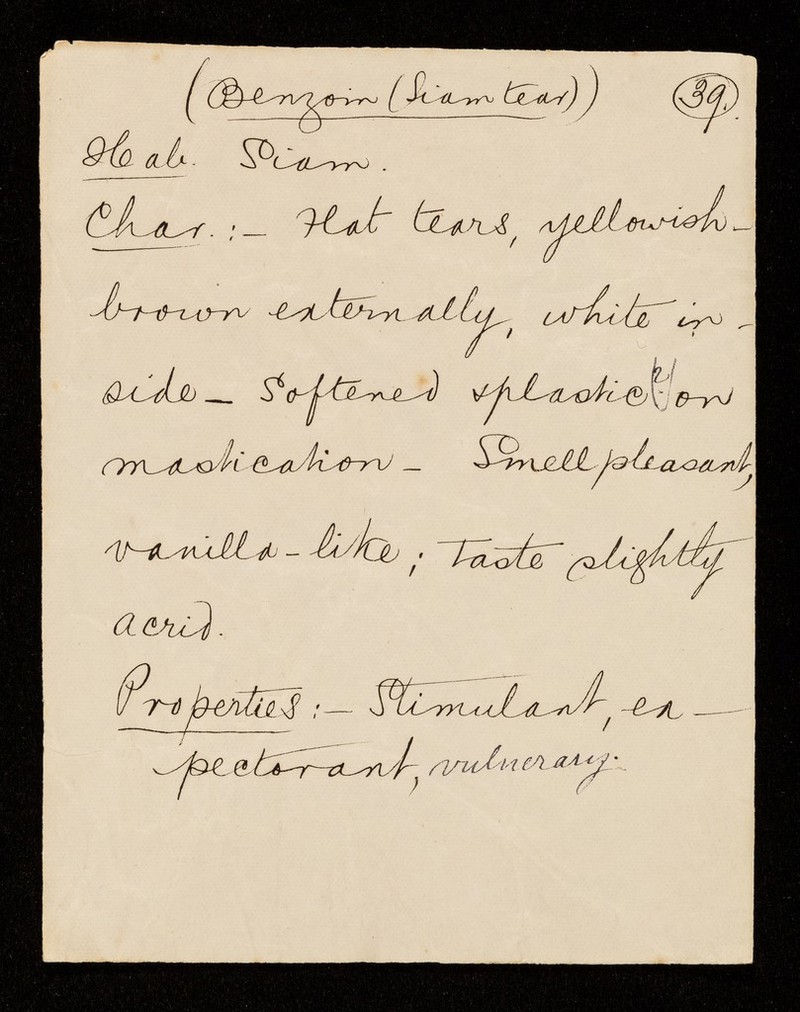 (Benzoin (Siam tear)) 39.
Hab. Siam.
Char. :- Flat tears, yellowish-
brown externally, white in-
side - Softened & plastic (?) on
mastication - Smell pleasant,
vanilla-like; Taste slightly
acrid.
Properties :- Stimulant, ex-
pectorant, vulnerary.